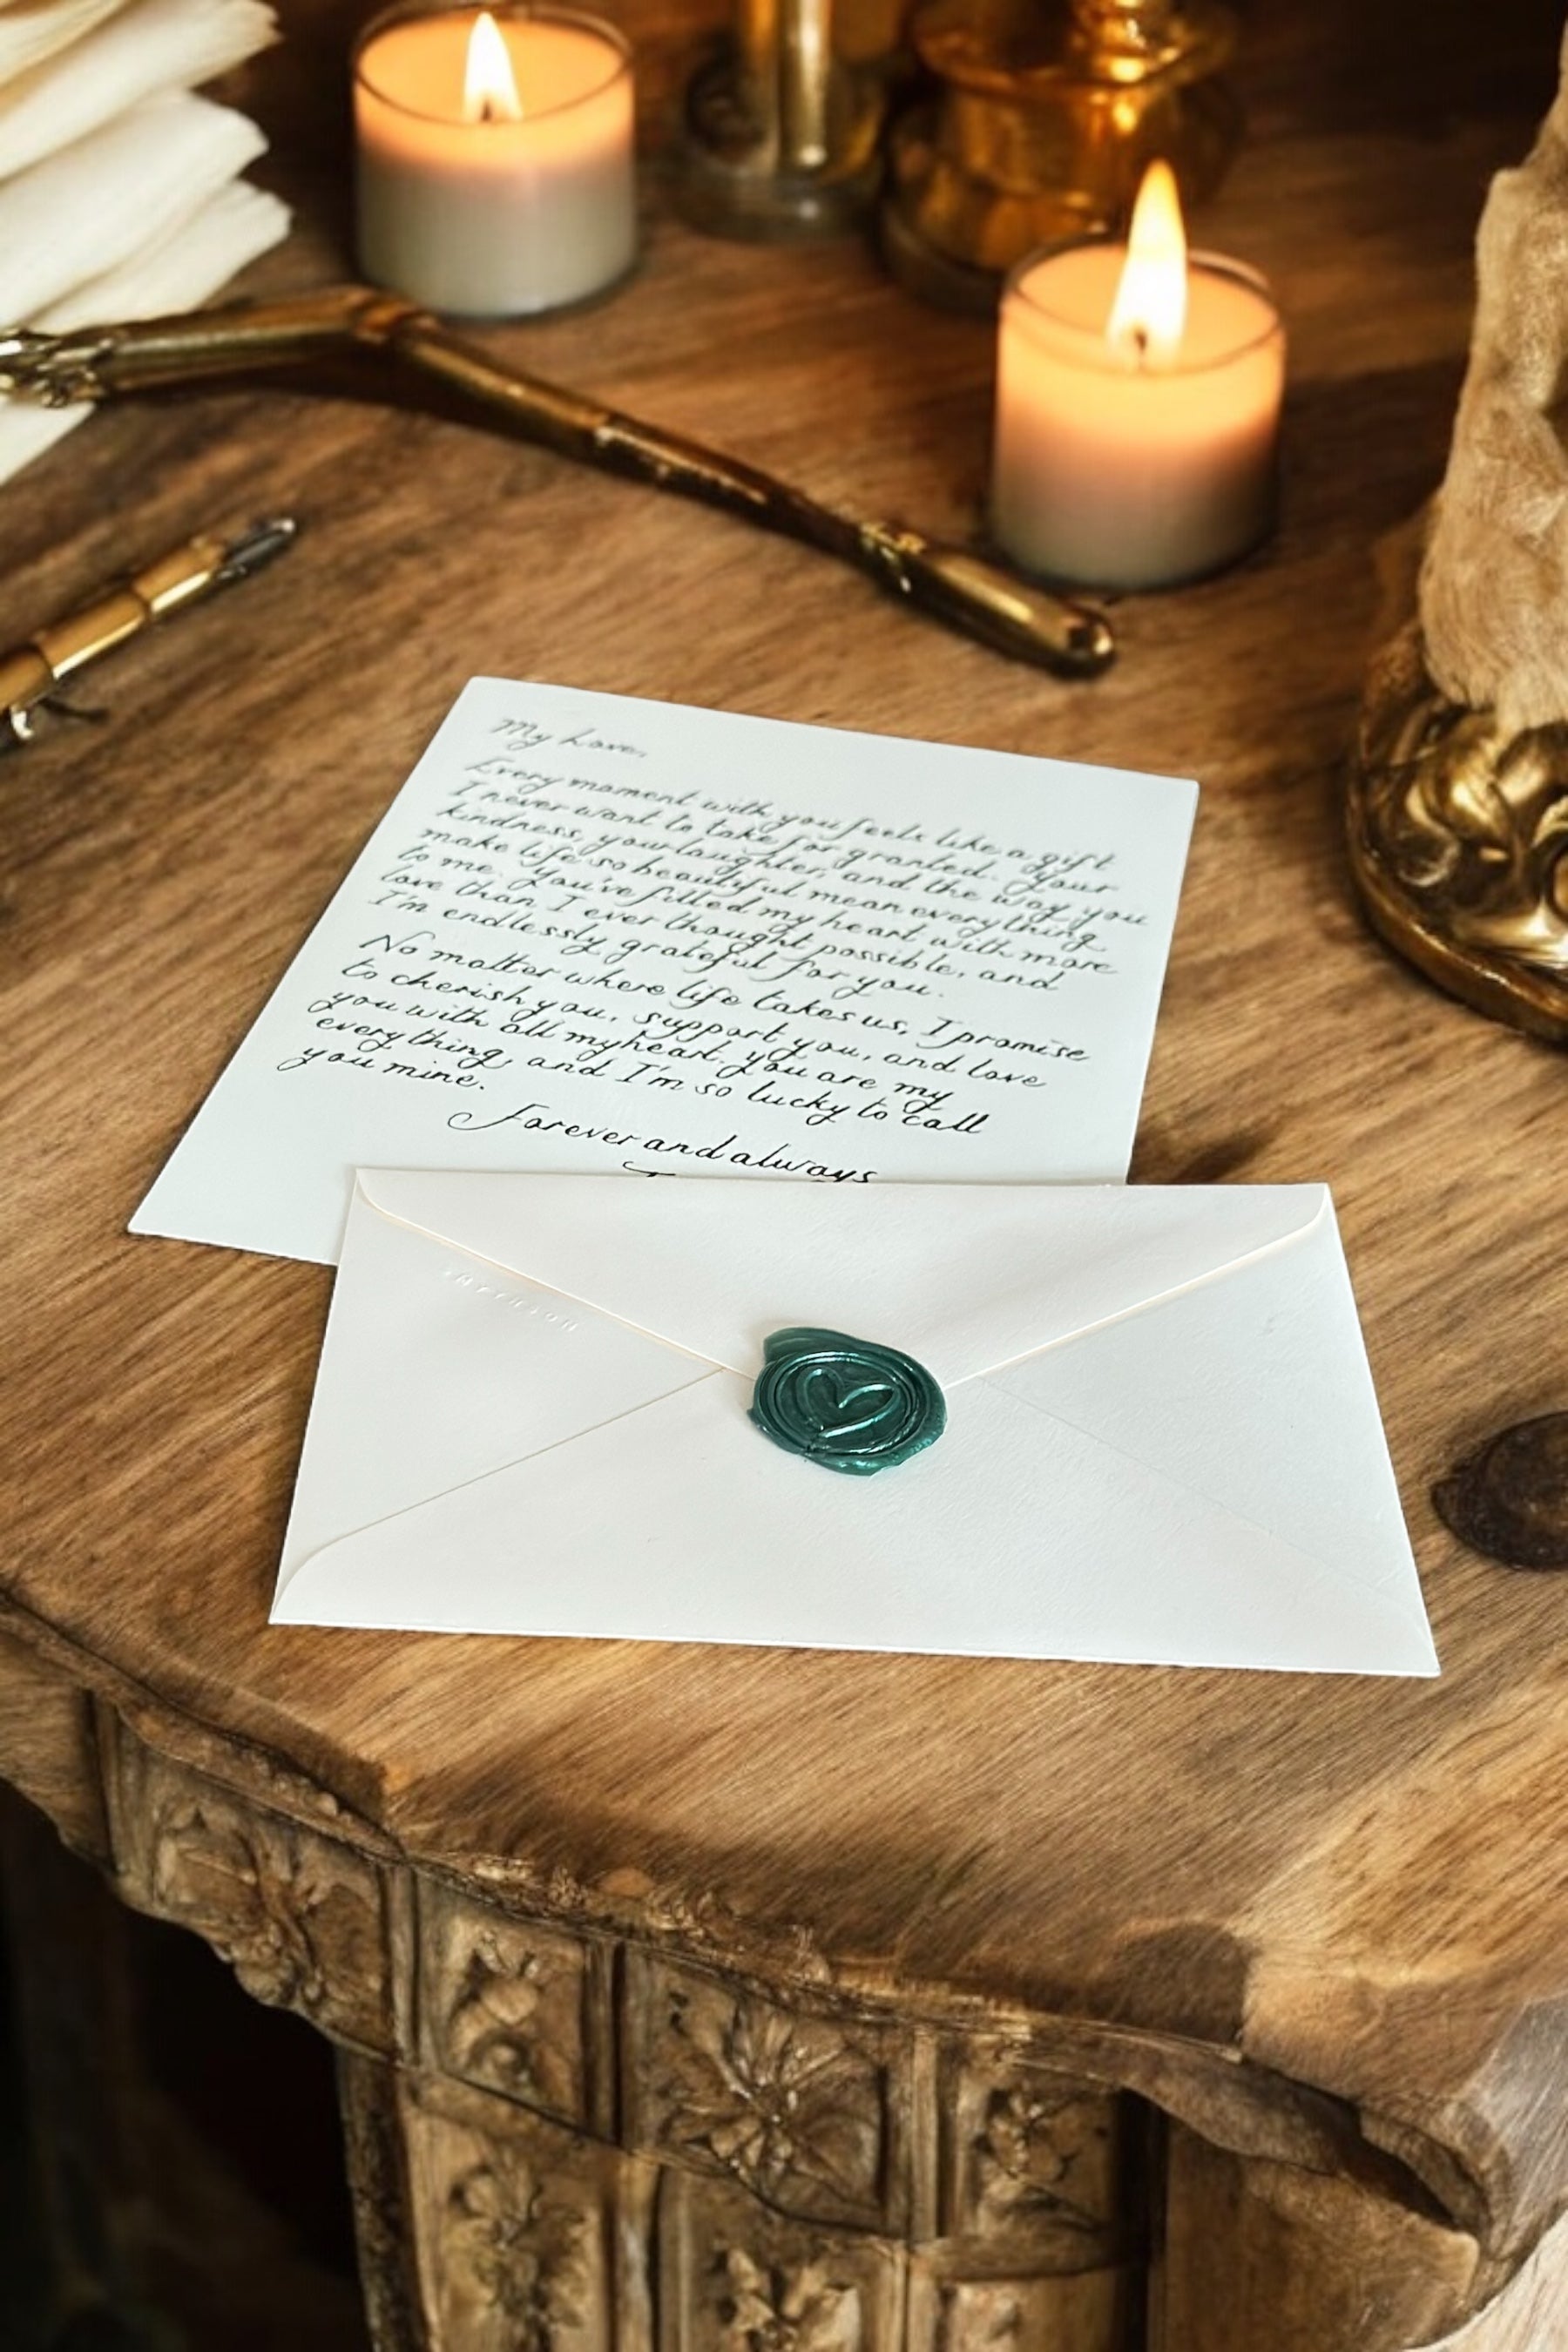 My Love,
Every moment with you feels like a gift
I never want to take for granted. Your
kindness, your laughter, and the way you
make life so beautiful mean everything
to me. You've filled my heart with more
love than I ever thought possible, and
I'm endlessly grateful for you.
No matter where life takes us, I promise
to cherish you, support you, and love
you with all my heart. you are my
everything, and I'm so lucky to call
you mine.
Forever and always